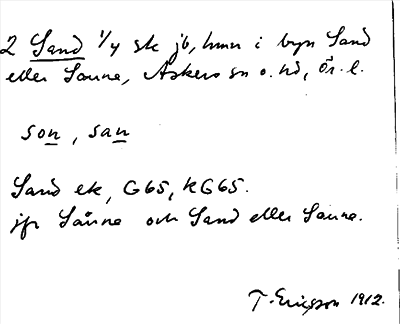 2 Sand 1/4 sk jb, hmn i byn Sand
eller Sanna, Askers sn o. hd, Ör. l.
son, san
Sand ek, G65, KG65.
jfr Sånna och Sand eller Sanna.
T. Ericsson 1912.